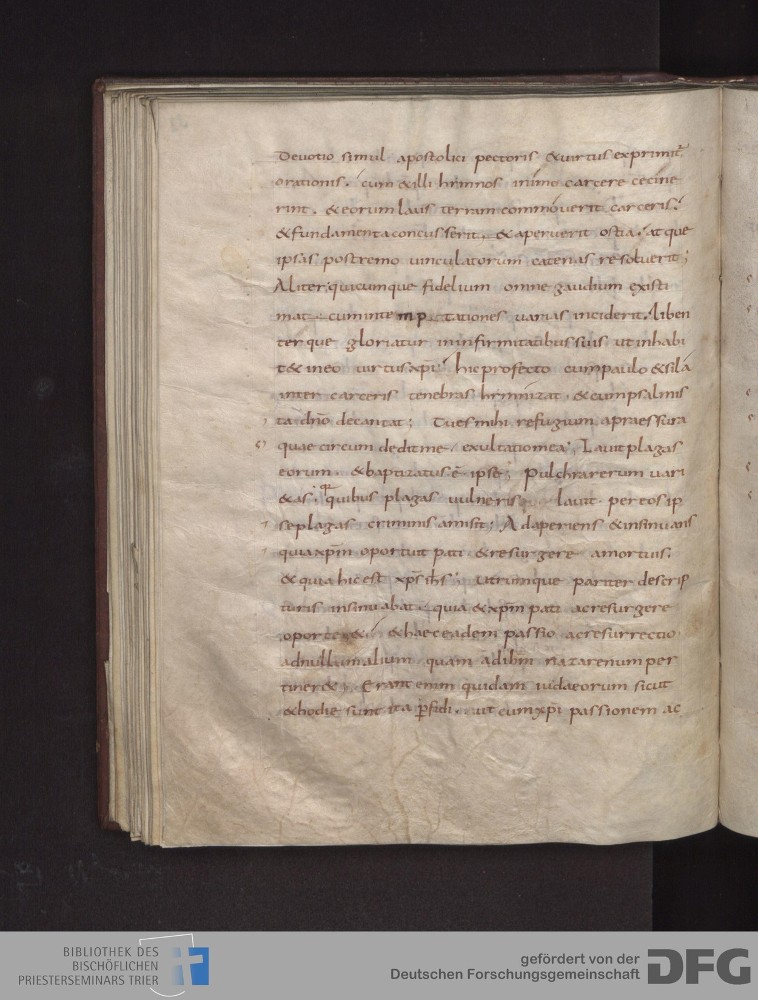 Deuotio simul apostolici pectoris & uirtus exprimit̄
orationis. cum & illi himnos in imo carcere cecine
rint. & eorum laus terram commouerit carceris.
& fundamenta concusserit. & aperuerit ostia. atque
ipsas postremo uinculatorum catenas resoluerit;
Aliter quicumque fidelium omne gaudium existi
mat. cum in temptationes uarias inciderit. liben
terque gloriatur in infirmitatibus suis ut inhabi
t& in eo uirtus xp̄i. hic profecto cum paulo & sila
inter carceris tenebras himnizat. & cum psalmis
ta dn̄o decantat; Tu es mihi refugium a praessura
quae circumdedit me. exultatio mea; Lauit plagas
eorum. & baptizatus ē ipse; Pulchra rerum uari
&as. quibus plagas uulneris lauit. per eos ip
se plagas criminis amisit; Adaperiens & insinuans
quia xp̄m oportuit pati & resurgere a mortuis.
& quia hic est xp̄s ih̄s; Utrumque pariter de scrip
turis insinuabat. quia & xp̄m pati ac resurgere
oporter& & haec eadem passio ac resurrectio
ad nullum alium quam ad ih̄m nazarenum per
tiner&; Erant enim quidam iudaeorum sicut
& hodie sunt ita p̄fidi. ut cum xp̄i passionem ac
BIBLIOTHEK DES
BISCHÖFLICHEN
PRIESTERSEMINARS TRIER
gefördert von der
Deutschen Forschungsgemeinschaft DFG